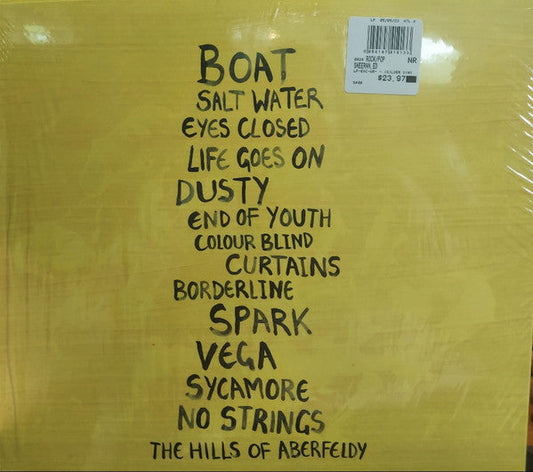 BOAT
SALT WATER
EYES CLOSED
LIFE GOES ON
DUSTY
END OF YOUTH
COLOUR BLIND
CURTAINS
BORDERLINE
SPARK
VEGA
SYCAMORE
NO STRINGS
THE HILLS OF ABERFELDY
ROCK/POP NR
SHEERAN,ED
$23.97